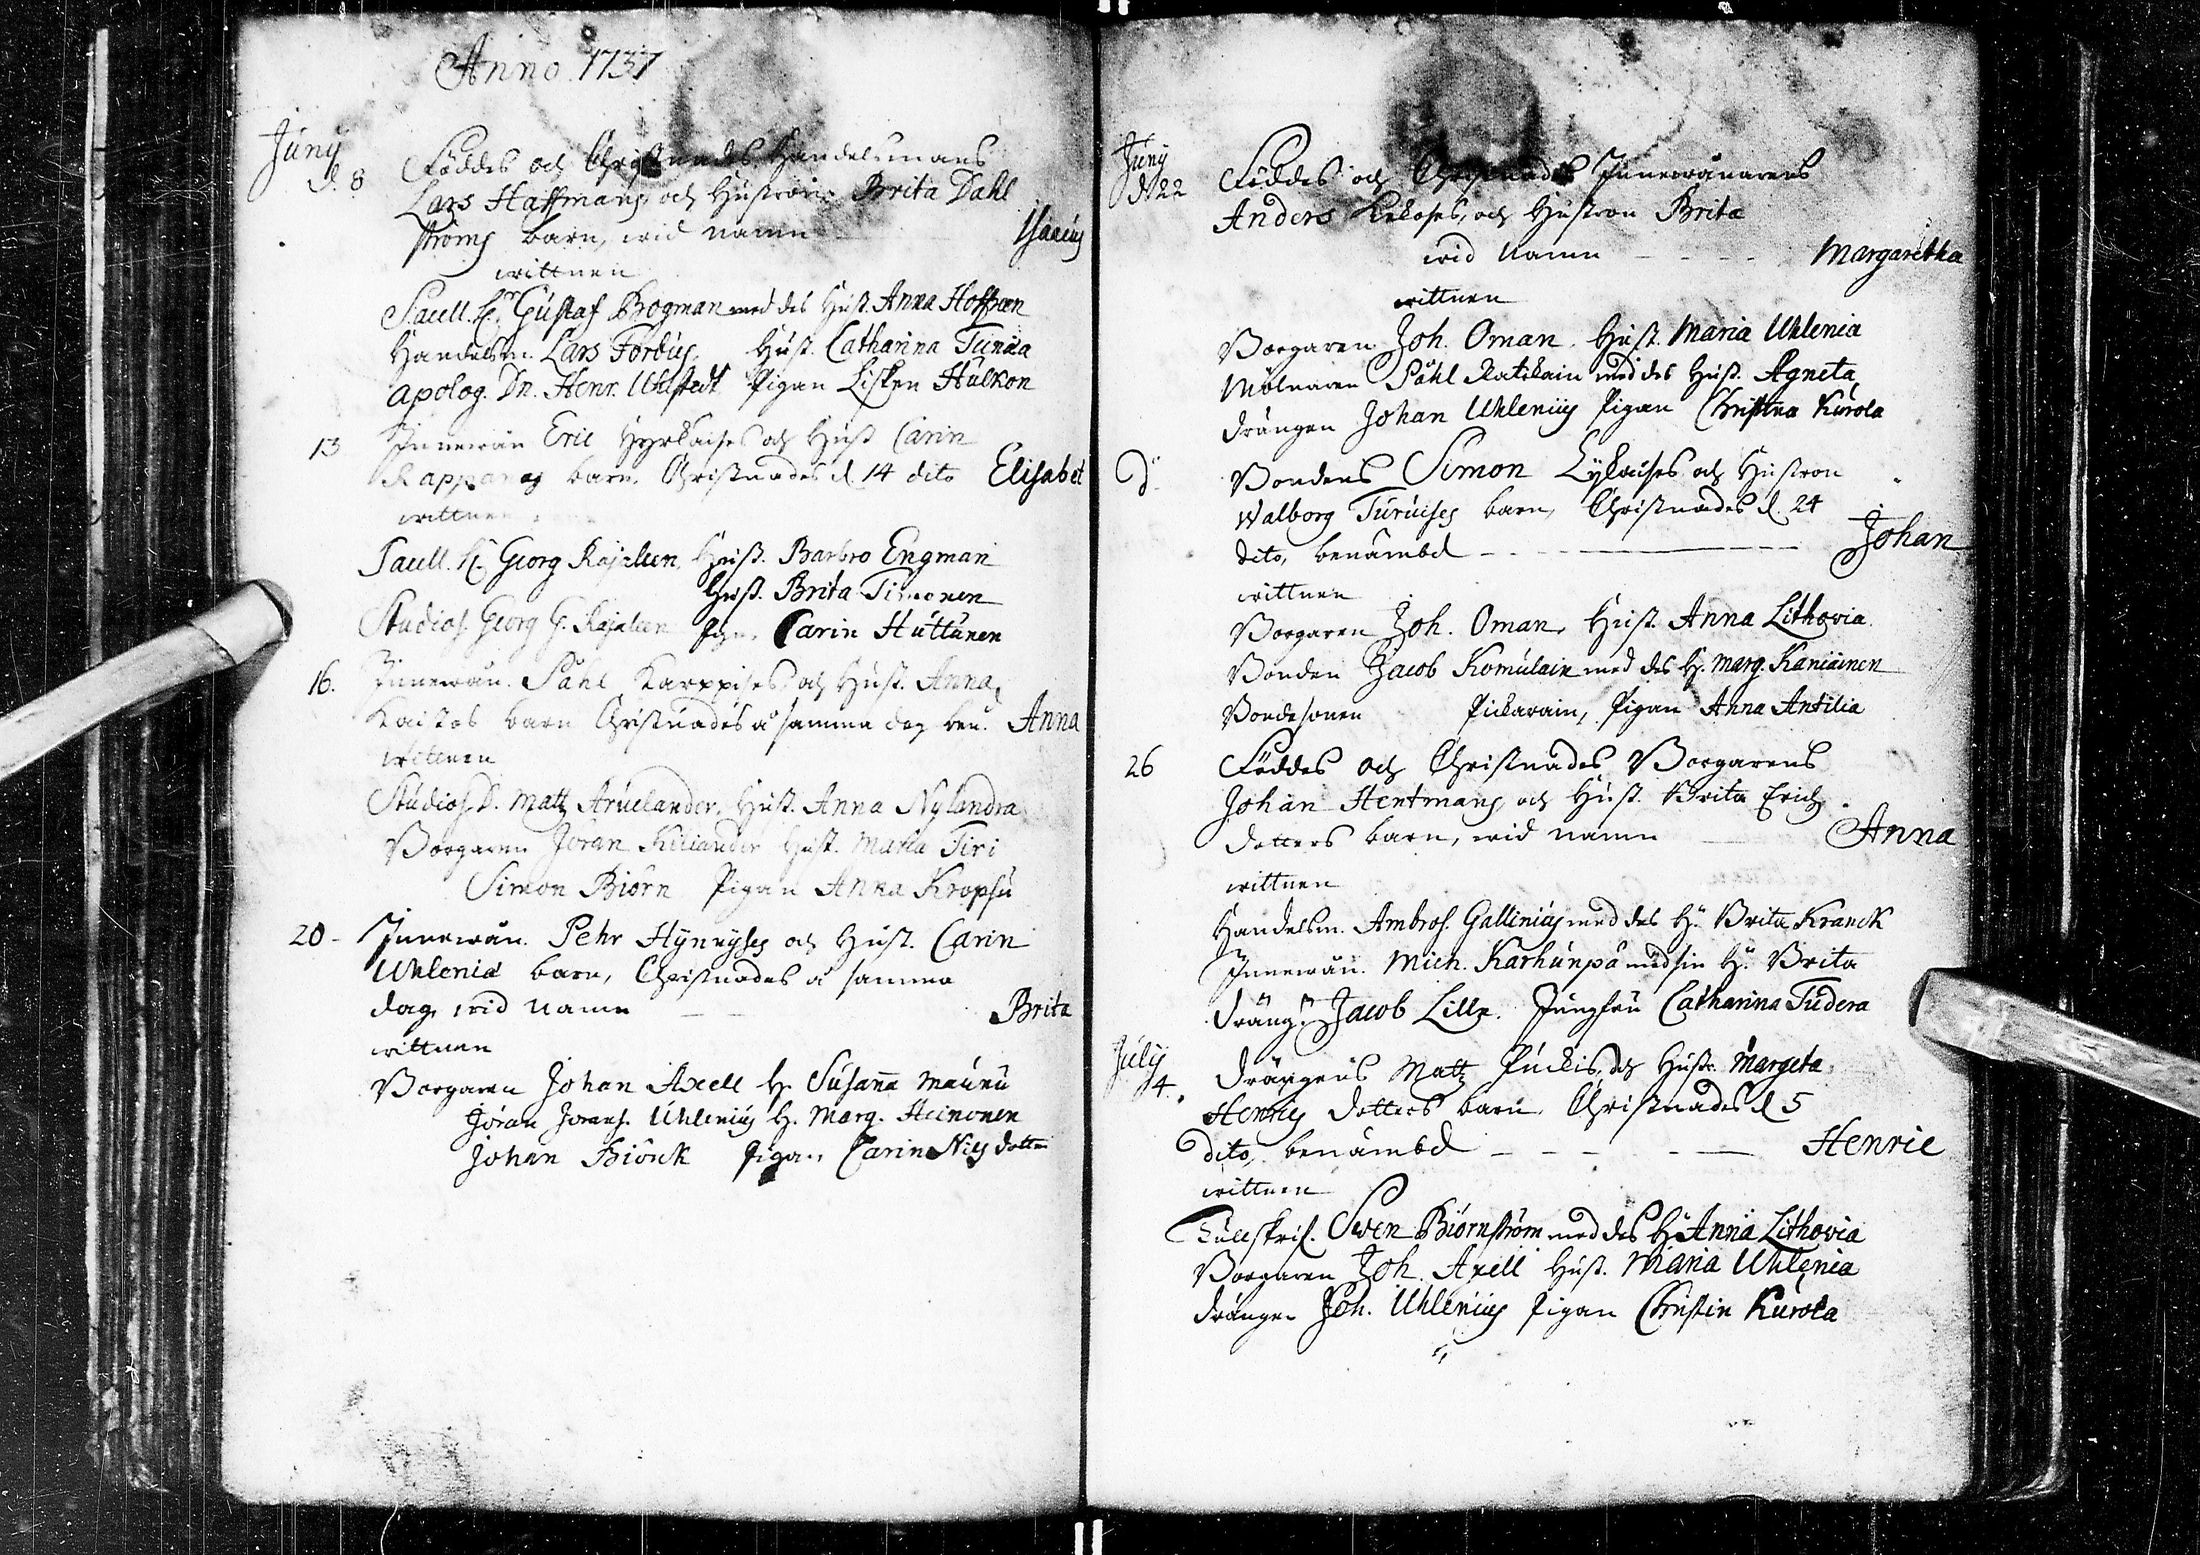 Anno 1737
Junij
d. 8 Föddes och Christnades Handelsmans
Lars Haffmans, och Hustruns Brita Dahl
ströms barn, wid namn Isacus
wittnen
Gustaf Bogman med des Hust. Anna Hoffren
Handelsm. Lars Forbus, Hust. Catharina Tunaa
Apolog. Dn. Henr. Uhlstedt Pigan Lisken Hulkon
13 Innewån Eric Hyrkaises och Hust Carin
barn, Christnades d. 14 dito Elisabet
wittnen
Georg Rajaleen, Hust. Barbro Engman
Hust. Brita Timonen
Studios. Georg G. Rajaleen Pig. Carin Huttunen
16. Innewån. Påhl Karppises och Hust. Anna
barn Christnades å samma dag ben. Anna
wittnen
Studios. D. Matz Aruelander, Hust. Anna Nylandra
Borgaren Jöran Kiliander Hust. Maria Tiri
Simon Biörn Pigan Anna Kropsu
20 - Innewån. Pehr Hynnyses och Hust. Carin
Uhlenia barn, Christnades å samma
dag, wid namn Brita
wittnen
Borgaren Johan Axell H. Susanna Mauru
Jöran Jorans. Uhlenius H. Marg. Heinonen
Johan Biörck Pigan Carin Nils dotter
Junij
d. 22 Föddes och Christnades Innewånarens
Anders och Hustrun Brita
wid Namn - - - - Margaretha
wittnen
Borgaren Joh. Oman, Hust. Maria Uhlenia
Mölnaren Påhl Ratikain med des Hust. Agneta
Drängen Johan Uhlenius Pigan Christina Kurola
d. Bondens Simon Lykaises och Hustrun
Walborg Turuises barn, Christnades d. 24
dito, benämbd - - - Johan
wittnen
Borgaren Joh. Oman, Hust. Anna Lithovia
Bonden Jacob Komulain med des H. Marg. Kaniainen
Bondesonen Pickarain, Pigan Anna Antilia
26 Föddes och Christnades Borgarens
Johan Hentmans och Hust. Brita Erichs
dotters barn, wid namn Anna
wittnen
Handelsm. Ambros. Gallinius med des H. Brita Kranck
Innewån. Mich. Karhunpä med sin H. Brita
Dräng. Jacob Lille. Jungfru Catharina Tudera
July
4. Drängens Matz Puckis, och Hust. Margeta
Henrics dotters barn, Christnades d. 5
dito, benämbd - - - - Henric
wittnen
Tullskrif. Swen Biörnström med des H. Anna Lithovia
Borgaren Joh. Axell Hust. Maria Uhlenia
Drängen Joh. Uhlenius Pigan Christin Kurola